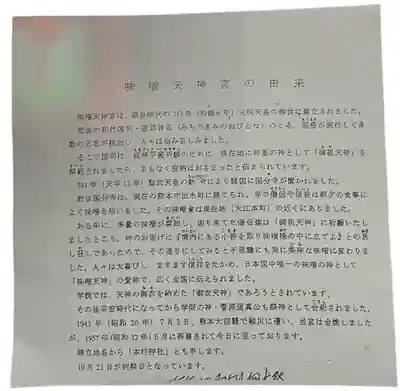 味噌天神宮の由来
味噌天神宮は、奈良時代の713年（和銅6年）元明天皇の御世に建立されました。
肥後の初代国司・道君首名（みちのきみのおびとな）のとき、悪疫が流行して多
数の死者が続出し、人々は悩み苦しみました。
そこで国司は疫病平癒の為のために、現在地に神薬の神として「御祖天神」を
祭祀されましたら、まもなく疫病はおさまったと伝えられています。
741年（天平13年）聖武天皇の勅令により諸国に国分寺が置かれました。
肥後国分寺は、現在の熊本市出水町に建てられ、学の僧侶や信徒は朝夕の食事に
よく味噌を用いました。その味噌倉は現在地（大江本町）の近くにありました。
ある年に、多量の味噌が腐敗し、困り果てた僧侶達は「御祖天神」に祈願いたし
ましたところ、神のお告げに『境内にある小笹を取り味噌桶の中に立てよ』との思
し召しであったので、その通りにしてみると不思議にも実に美味な味噌に変わりま
した。人々は大喜びし、ますます信仰をたかめ、日本国中唯一の味噌の神として
「味噌天神」の愛称で、広く全国に伝えられました。
学説では、天神の御衣を納めた「御衣天神」であろうとされています。
その後平安時代になってから学問の神・菅原道真公も祭神として合祀されました。
1945年（昭和20年）7月1日、熊本大空襲で戦災に遭い、当宮は全焼しました
が、1957年（昭和32年）5月に再建されて今日に至っております。
建立地名から「本村神社」とも申します。
10月25日が例祭日となっています。